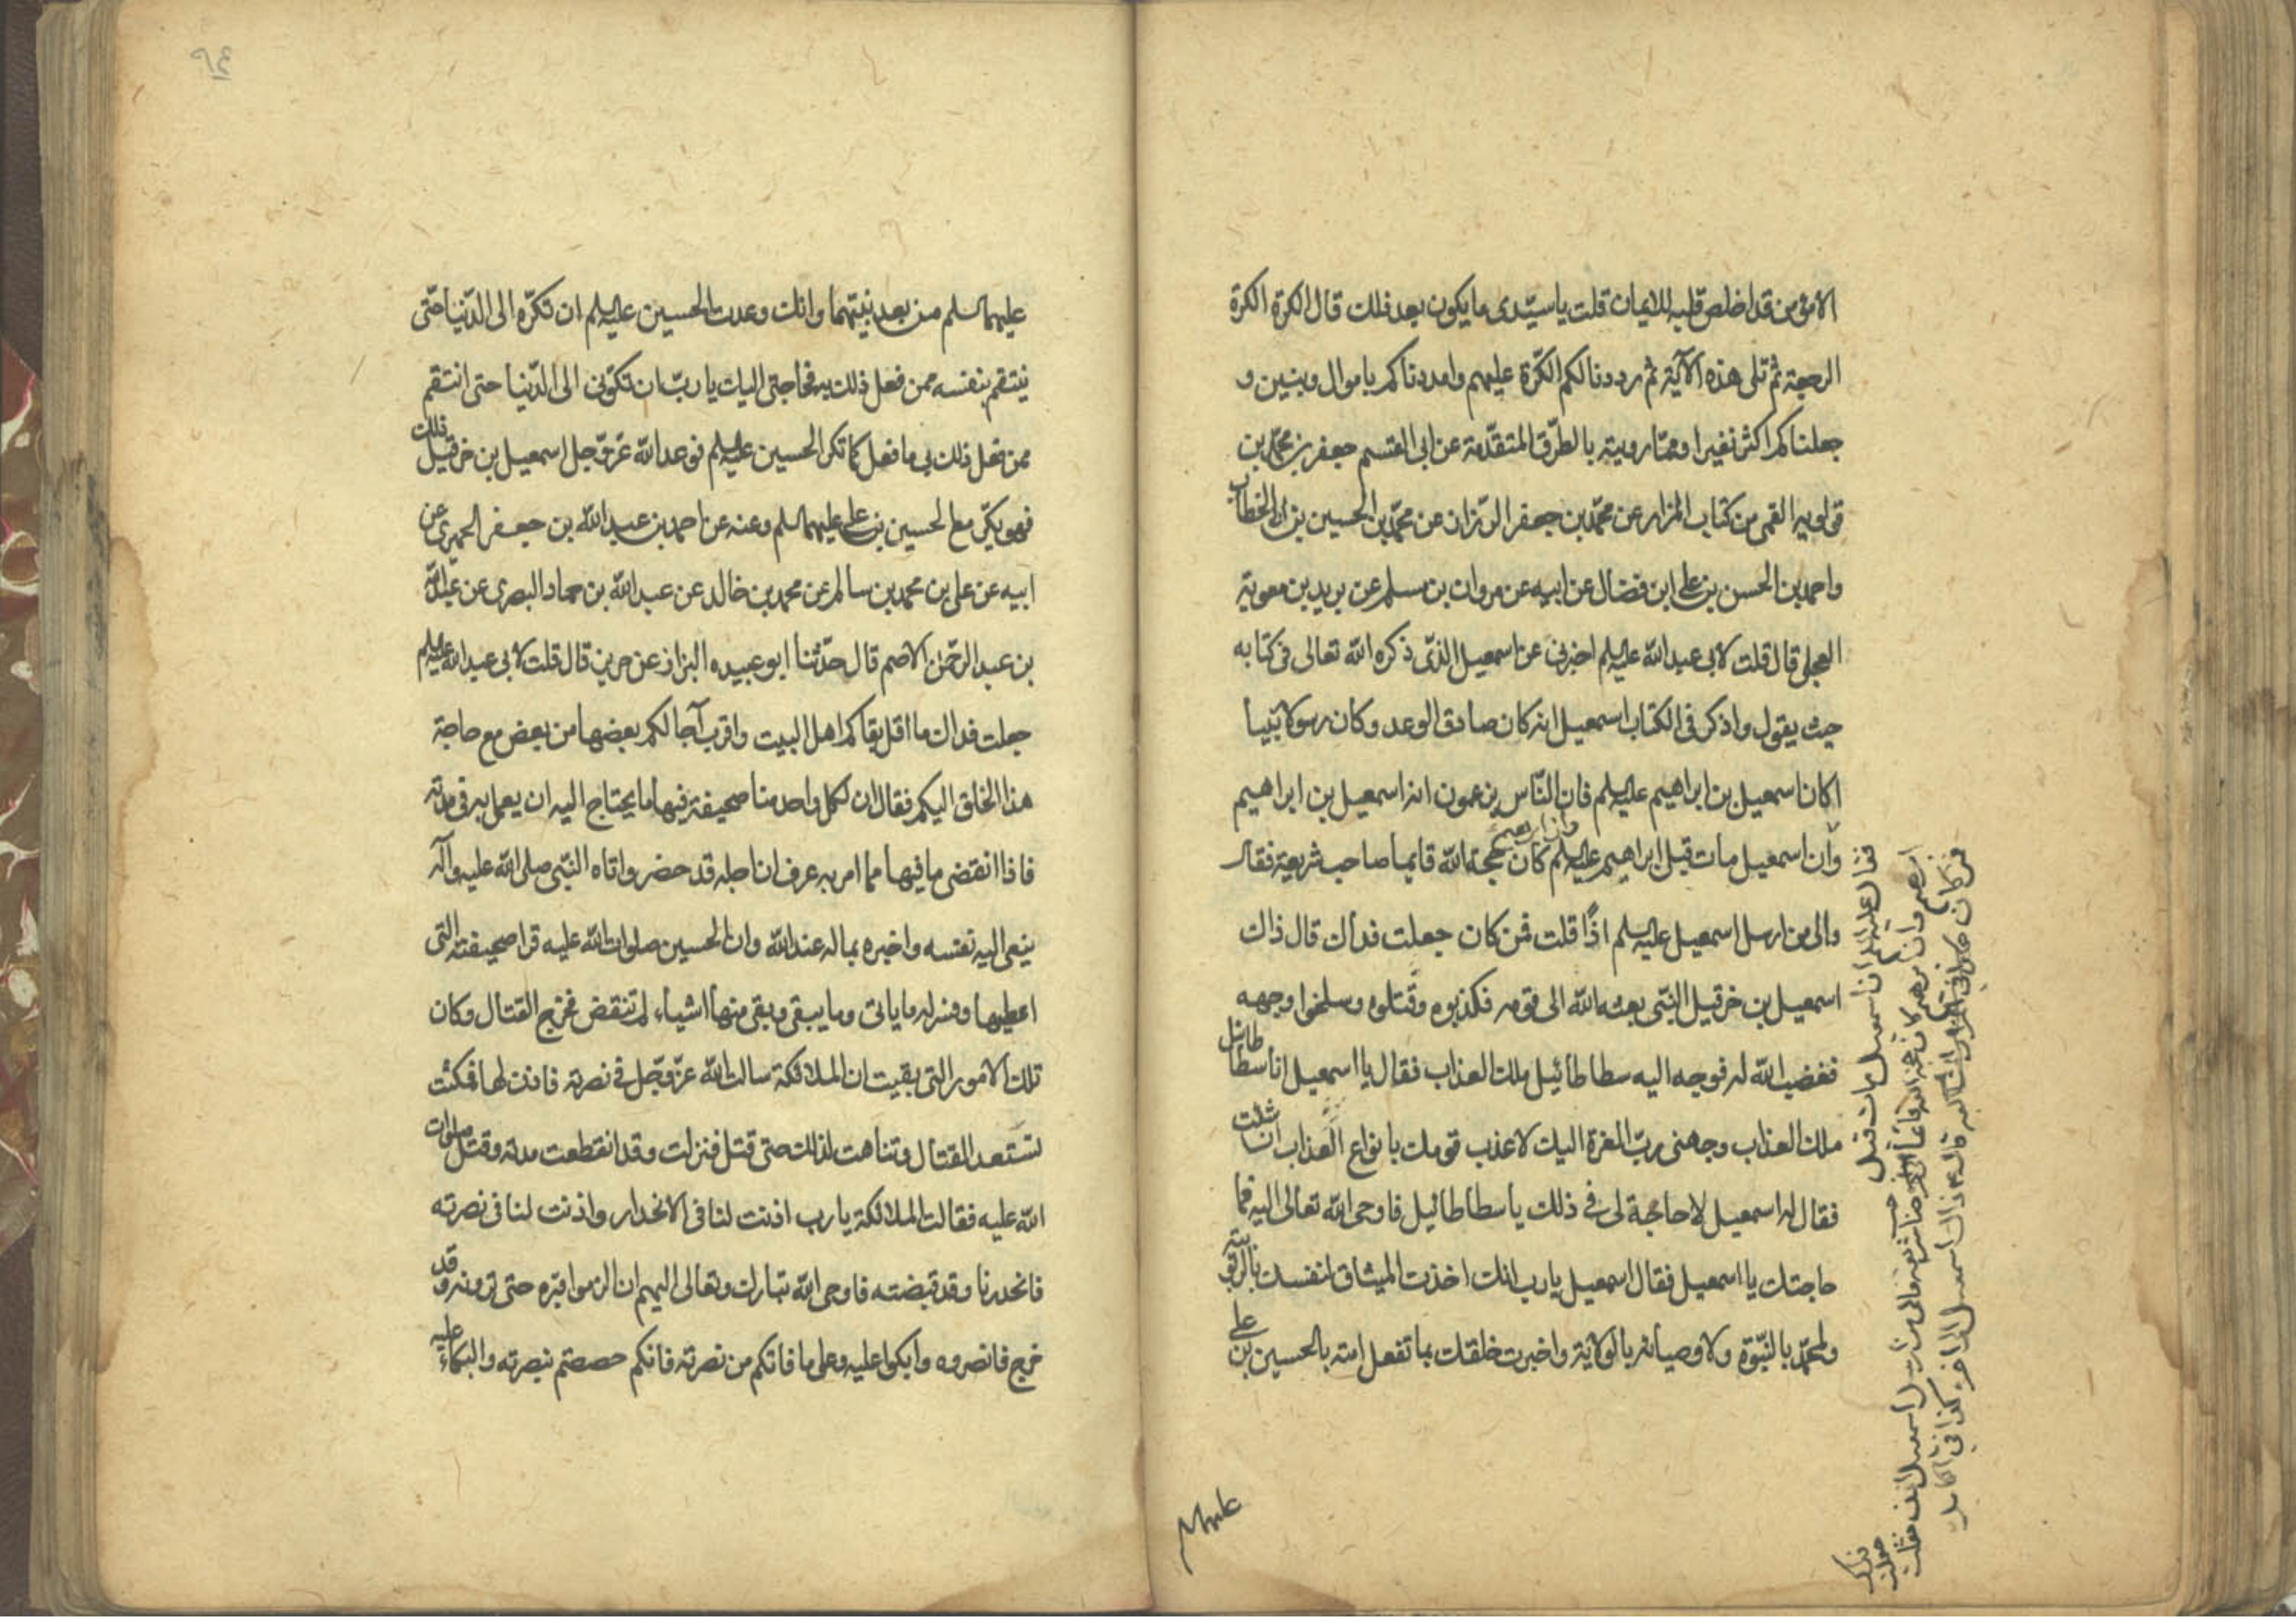 الا مؤمن قد اخلص قلبه للايمان قلت يا سيّدى ما يكون بعد ذلك قال الكرة الكرة
الرجعة ثم تلى هذه الآية ثم رددنا لكم الكرّة عليهم وامددناكم باموال وبنين و
جعلناكم اكثر نفيرا وممّا رويته بالطرّق المتقدّمة عن ابى القسم جعفر بن محمّد بن
قولويه القمى من كتاب المزار عن محمّد بن جعفر الرزّاز عن محمّد بن الحسين بن ابى الخطاب
واحمد بن الحسن بن على ابن فضال عن ابيه عن مروان بن مسلم عن بريد بن معوية
العجلى قال قلت لابى عبد الله عليه السلم اخبرنى عن اسمعيل الذى ذكره الله تعالى فى كتابه
حيث يقول واذكر فى الكتاب اسمعيل انه كان صادق الوعد وكان رسولا نبيا
اكان اسمعيل بن ابراهيم عليه السلم فان النّاس يزعمون انه اسمعيل بن ابراهيم
وان اسمعيل مات قبل ابراهيم عليه السلم كان حجة الله قايما صاحب شريعة فقال
والى من ارسل اسمعيل عليه السلم اذًا قلت فمن كان جعلت فداك قال ذاك
اسمعيل بن خرقيل النّبى بعثه الله الى قومه فكذبوه وقتلوه وسلخوا وجهه
فغضب الله له فوجه اليه سطاطائيل ملك العذاب فقال يا اسمعيل انا سطاطائيل
ملك العذاب وجهنى ربّ العزة اليك لاعذب قومك بانواع العذاب ان شئت
فقال له اسمعيل لا حاجة لى فى ذلك يا سطاطائيل فاوحى الله تعالى اليه فما
حاجتك يا اسمعيل فقال اسمعيل يارب انك اخذت الميثاق لنفسك بالربوبية
ولمحمّد بالنّبوّة ولاوصيائه بالولاية واخبرت خلقك بما تفعل امته بالحسين بن على
عليهما السلم
فقال عليه السلم ان اسمعيل مات قبل
ابرهيم وان ابرهيم كان حجة لله قائما صاحب شريعة والى من ارسل اسمعيل اذن فقلت جعلت فداك
فمن كان قال ذاك اسمعيل كذا فى الكامل
٩٤
عليهما السلم من بعد نبيّهما وانك وعدت الحسين عليه السلم ان تكرّه الى الدّنيا حتّى
ينتقم بنفسه ممن فعل ذلك به فحاجتى اليك يا ربّ ان تكرّنى الى الدّنيا حتى انتقم
ممن فعل ذلك بى ما فعل كما تكر الحسين عليه السلم فوعد الله عزّوجل اسمعيل بن خرقيل ذلك
فهو يكرّ مع الحسين بن على عليهما السلم وعنه عن احمد بن عبد الله بن جعفر الحميرى عن
ابيه عن على بن محمد بن سالم عن محمد بن خالد عن عبد الله بن حماد البصرى عن عبد الله
بن عبد الرحمن الاصم قال حدّثنا ابو عبيده البزاز عن حريز قال قلت لابى عبد الله عليه السلم
جعلت فداك ما اقل بقاكم اهل البيت واقرب آجالكم بعضها من بعض مع حاجة
هذا الخلق اليكم فقال ان لكل واحد منا صحيفة فيها ما يحتاج اليه ان يعمل به فى مدته
فاذا انقضى ما فيها مما امر به عرف ان اجله قد حضر واتاه النّبى صلى الله عليه وآله
ينعى اليه نفسه واخبره بماله عند الله وان الحسين صلوات الله عليه قرا صحيفته التى
اعطيها وفسر له ما ياتى وما يبقى وبقى منها اشياء لم تنقض فخرج القتال وكان
تلك الامور التى بقيت ان الملائكة سالت الله عزّوجّل فى نصرته فاذن لها فمكثت
تستعد للقتال وتتاهب لذلك حتى قتل فنزلت وقد انقطعت مدته وقتل صلوات
الله عليه فقالت الملائكة يا رب اذنت لنا فى الانحدار واذنت لنا فى نصرته
فانحدرنا وقد قبضته فاوحى الله تبارك وتعالى اليهم ان الزموا قبره حتى ترونه وقد
خرج فانصروه وابكوا عليه وعلى ما فاتكم من نصرته فانكم خصصتم بنصرته والبكاء عليه